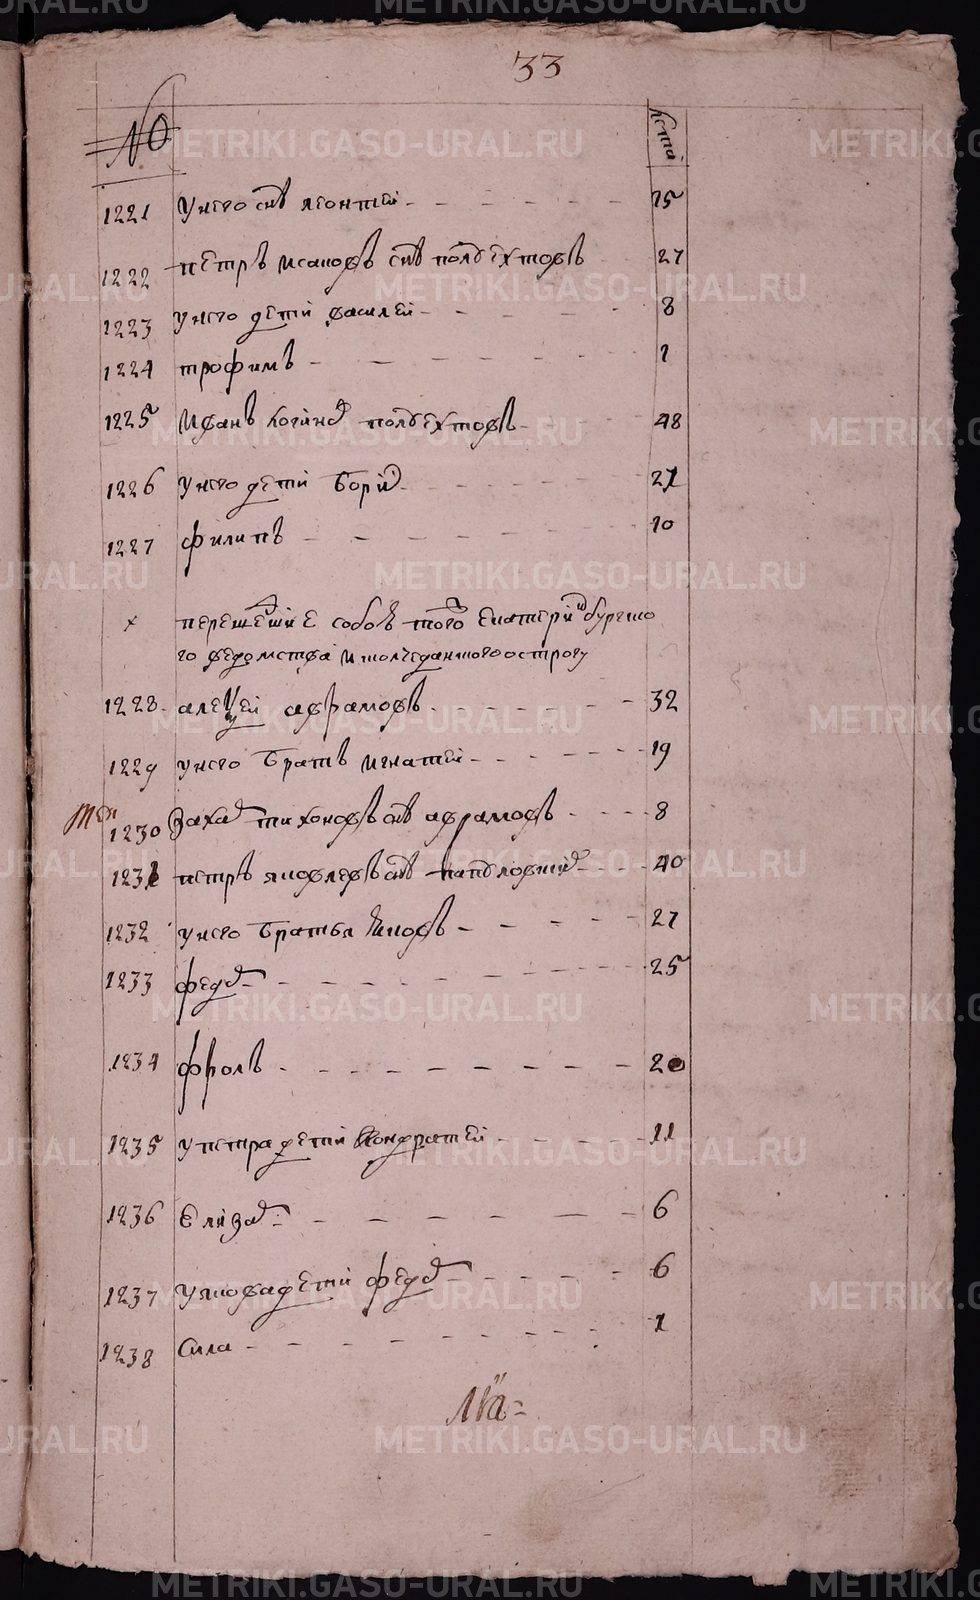 33
№ лета
1221 У него сн̃ъ леонтеи 25
1222 петръ исаковъ сн̃ъ полуехтовъ 27
1223 У него дети василеи 8
1224 трофимъ 1
1225 Иванъ полуехтовъ 48
1226 У него дети борис 21
1227 филипъ 10
х перешедшие собою того екатеринбурско
го ведомства ис колчеданского острогу
1228 алексеи аврамовъ 32
1229 у него братъ игнатеи 19
1230 Захар тихоновъ сн̃ъ аврамовъ 8
1231 петръ яковлевъ сн̃ъ 40
1232 у него братья яковъ 27
1233 федор 25
1234 фролъ 20
1235 у петра дети кондратеи 11
1236 Елизар 6
1237 У якова дети федор 6
1238 Сила 1